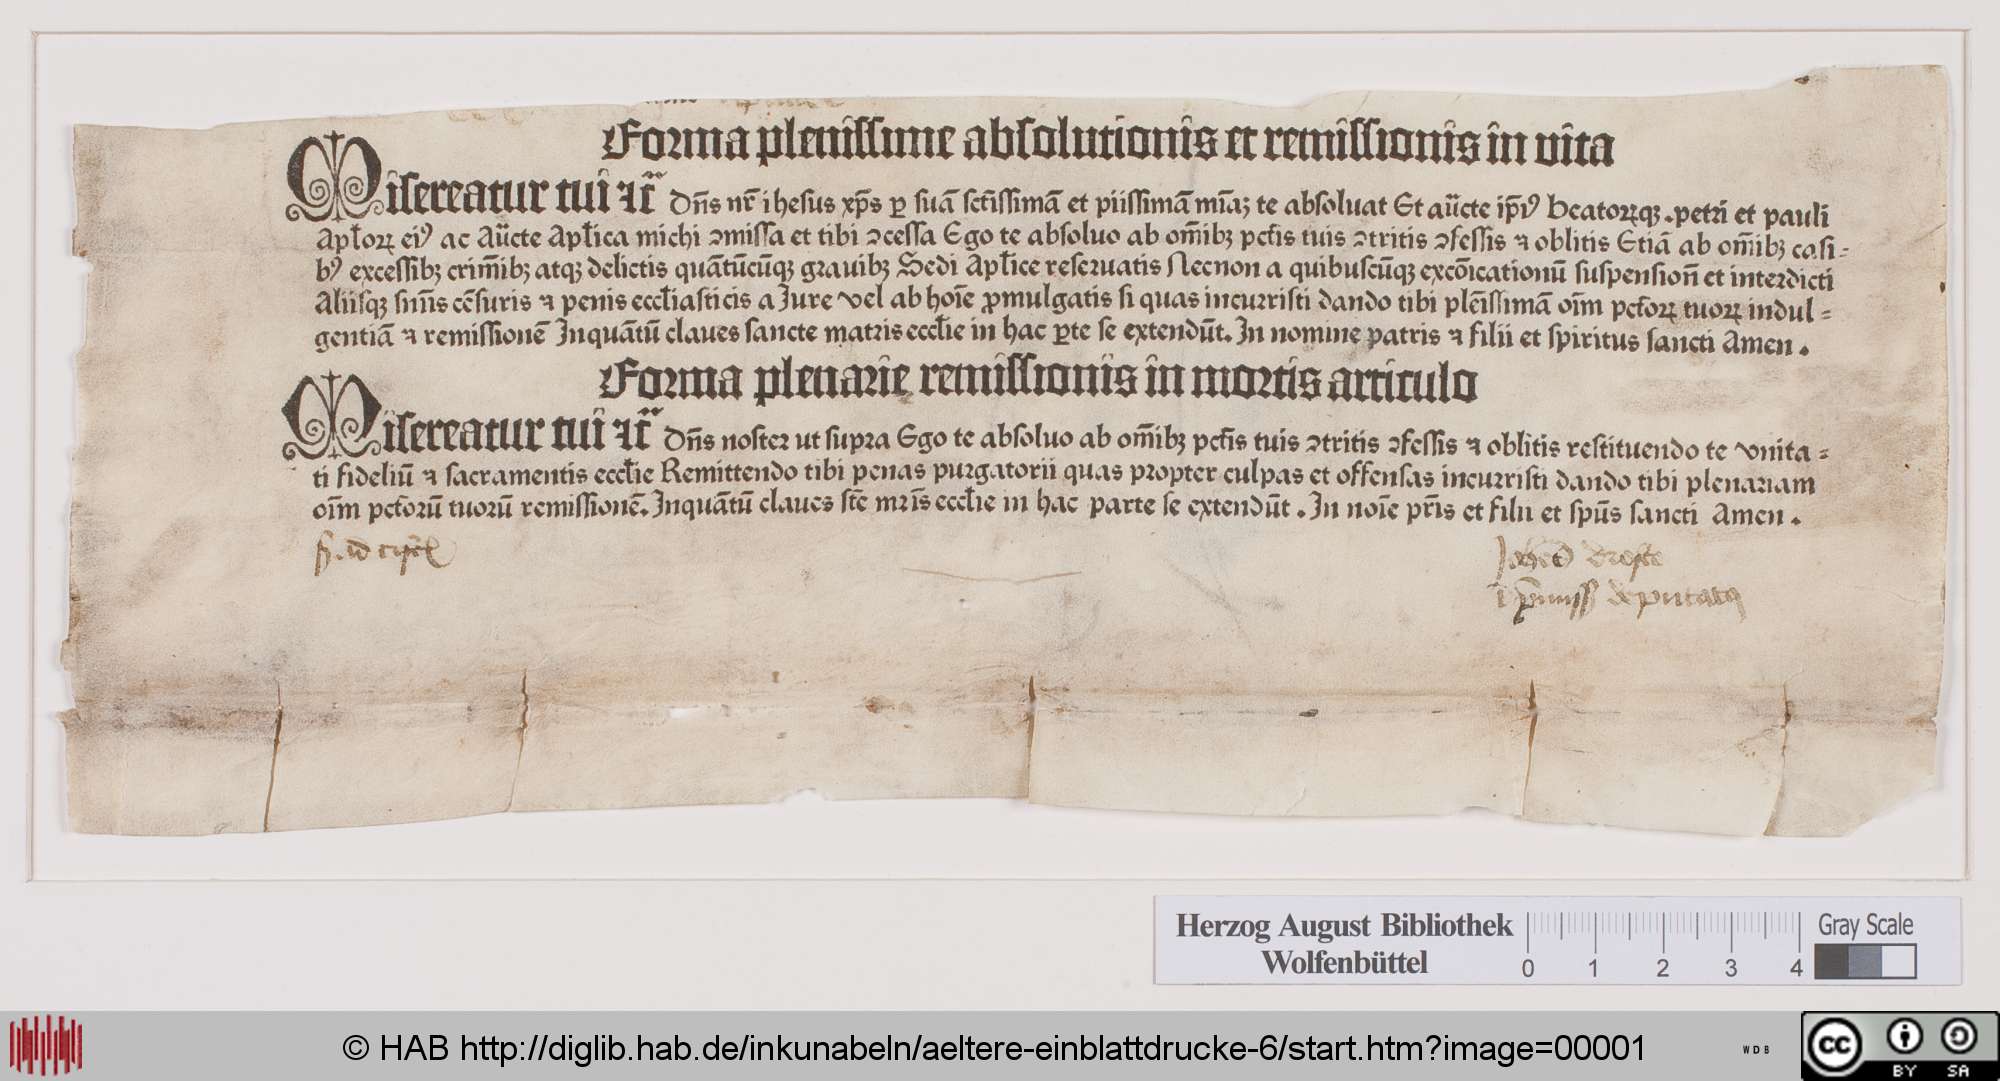 Forma plenissime absolutionis et remissionis in vita
Misereatur tui ⁊c̃ Dñs nr̃ ihesus xp̃s ꝑ suã sctĩssimã et piissimã mĩaꝫ te absoluat Et aũcte ip̃iꝰ beatoꝝqꝫ petri et pauli
Apl̃oꝝ eiꝰ ac Aũcte Apl̃ica michi ꝯmissa et tibi ꝯcessa Ego te absoluo ab om̃ibꝫ pctĩs tuis ꝯtritis ꝯfessis ⁊ oblitis Etiã ab om̃ibꝫ casi⸗
bꝰ excessibꝫ crim̃ibꝫ atqꝫ delictis quãtũcũqꝫ grauibꝫ Sedi Apl̃ice reseruatis Necnon a quibuscũqꝫ excõicationũ suspensioñ et interdicti
Aliisqꝫ sniĩs cẽsuris ⁊ penis eccl̃iasticis a Jure vel ab hoĩe ꝓmulgatis si quas incurristi dando tibi plẽissimã oĩm pctõꝝ tuoꝝ indul⸗
gentiã ⁊ remissionẽ Inquãtũ claues sancte matris eccl̃ie in hac ꝑte se extendũt. In nomine patris ⁊ filii et spiritus sancti Amen.
Forma plenarie remissionis in mortis articulo
Misereatur tui ⁊c̃ Dñs noster ut supra Ego te absoluo ab om̃ibꝫ pctĩs tuis ꝯtritis ꝯfessis ⁊ oblitis restituendo te vnita⸗
ti fideliũ ⁊ sacramentis eccl̃ie Remittendo tibi penas purgatorii quas propter culpas et offensas incurristi dando tibi plenariam
oĩm pctõrũ tuorũ remissionẽ. Inquãtũ claues stẽ mrĩs eccl̃ie in hac parte se extendũt. In noĩe pr̃is et filii et spũs sancti Amen.
droste
deputatꝰ
Herzog August Bibliothek
Wolfenbüttel
0 1 2 3 4
Gray Scale
© HAB http://diglib.hab.de/inkunabeln/aeltere-einblattdrucke-6/start.htm?image=00001
WDB
cc BY SA